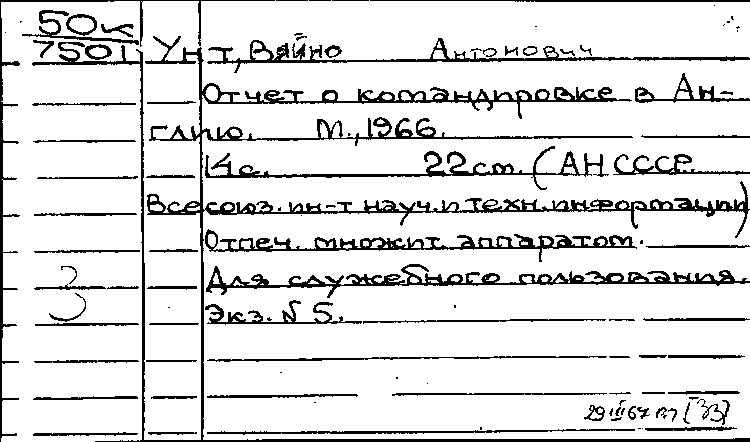 50к
7501 Унт, Вяйно Антонович
Отчет о командировке в Ан-
глию. М., 1966.
14 с. 22 см. (АН СССР.
Всесоюз. ин-т науч. и техн. информации)
Отпеч. множит. аппаратом.
Для служебного пользования.
3
Экз. № 5.
29 III 67